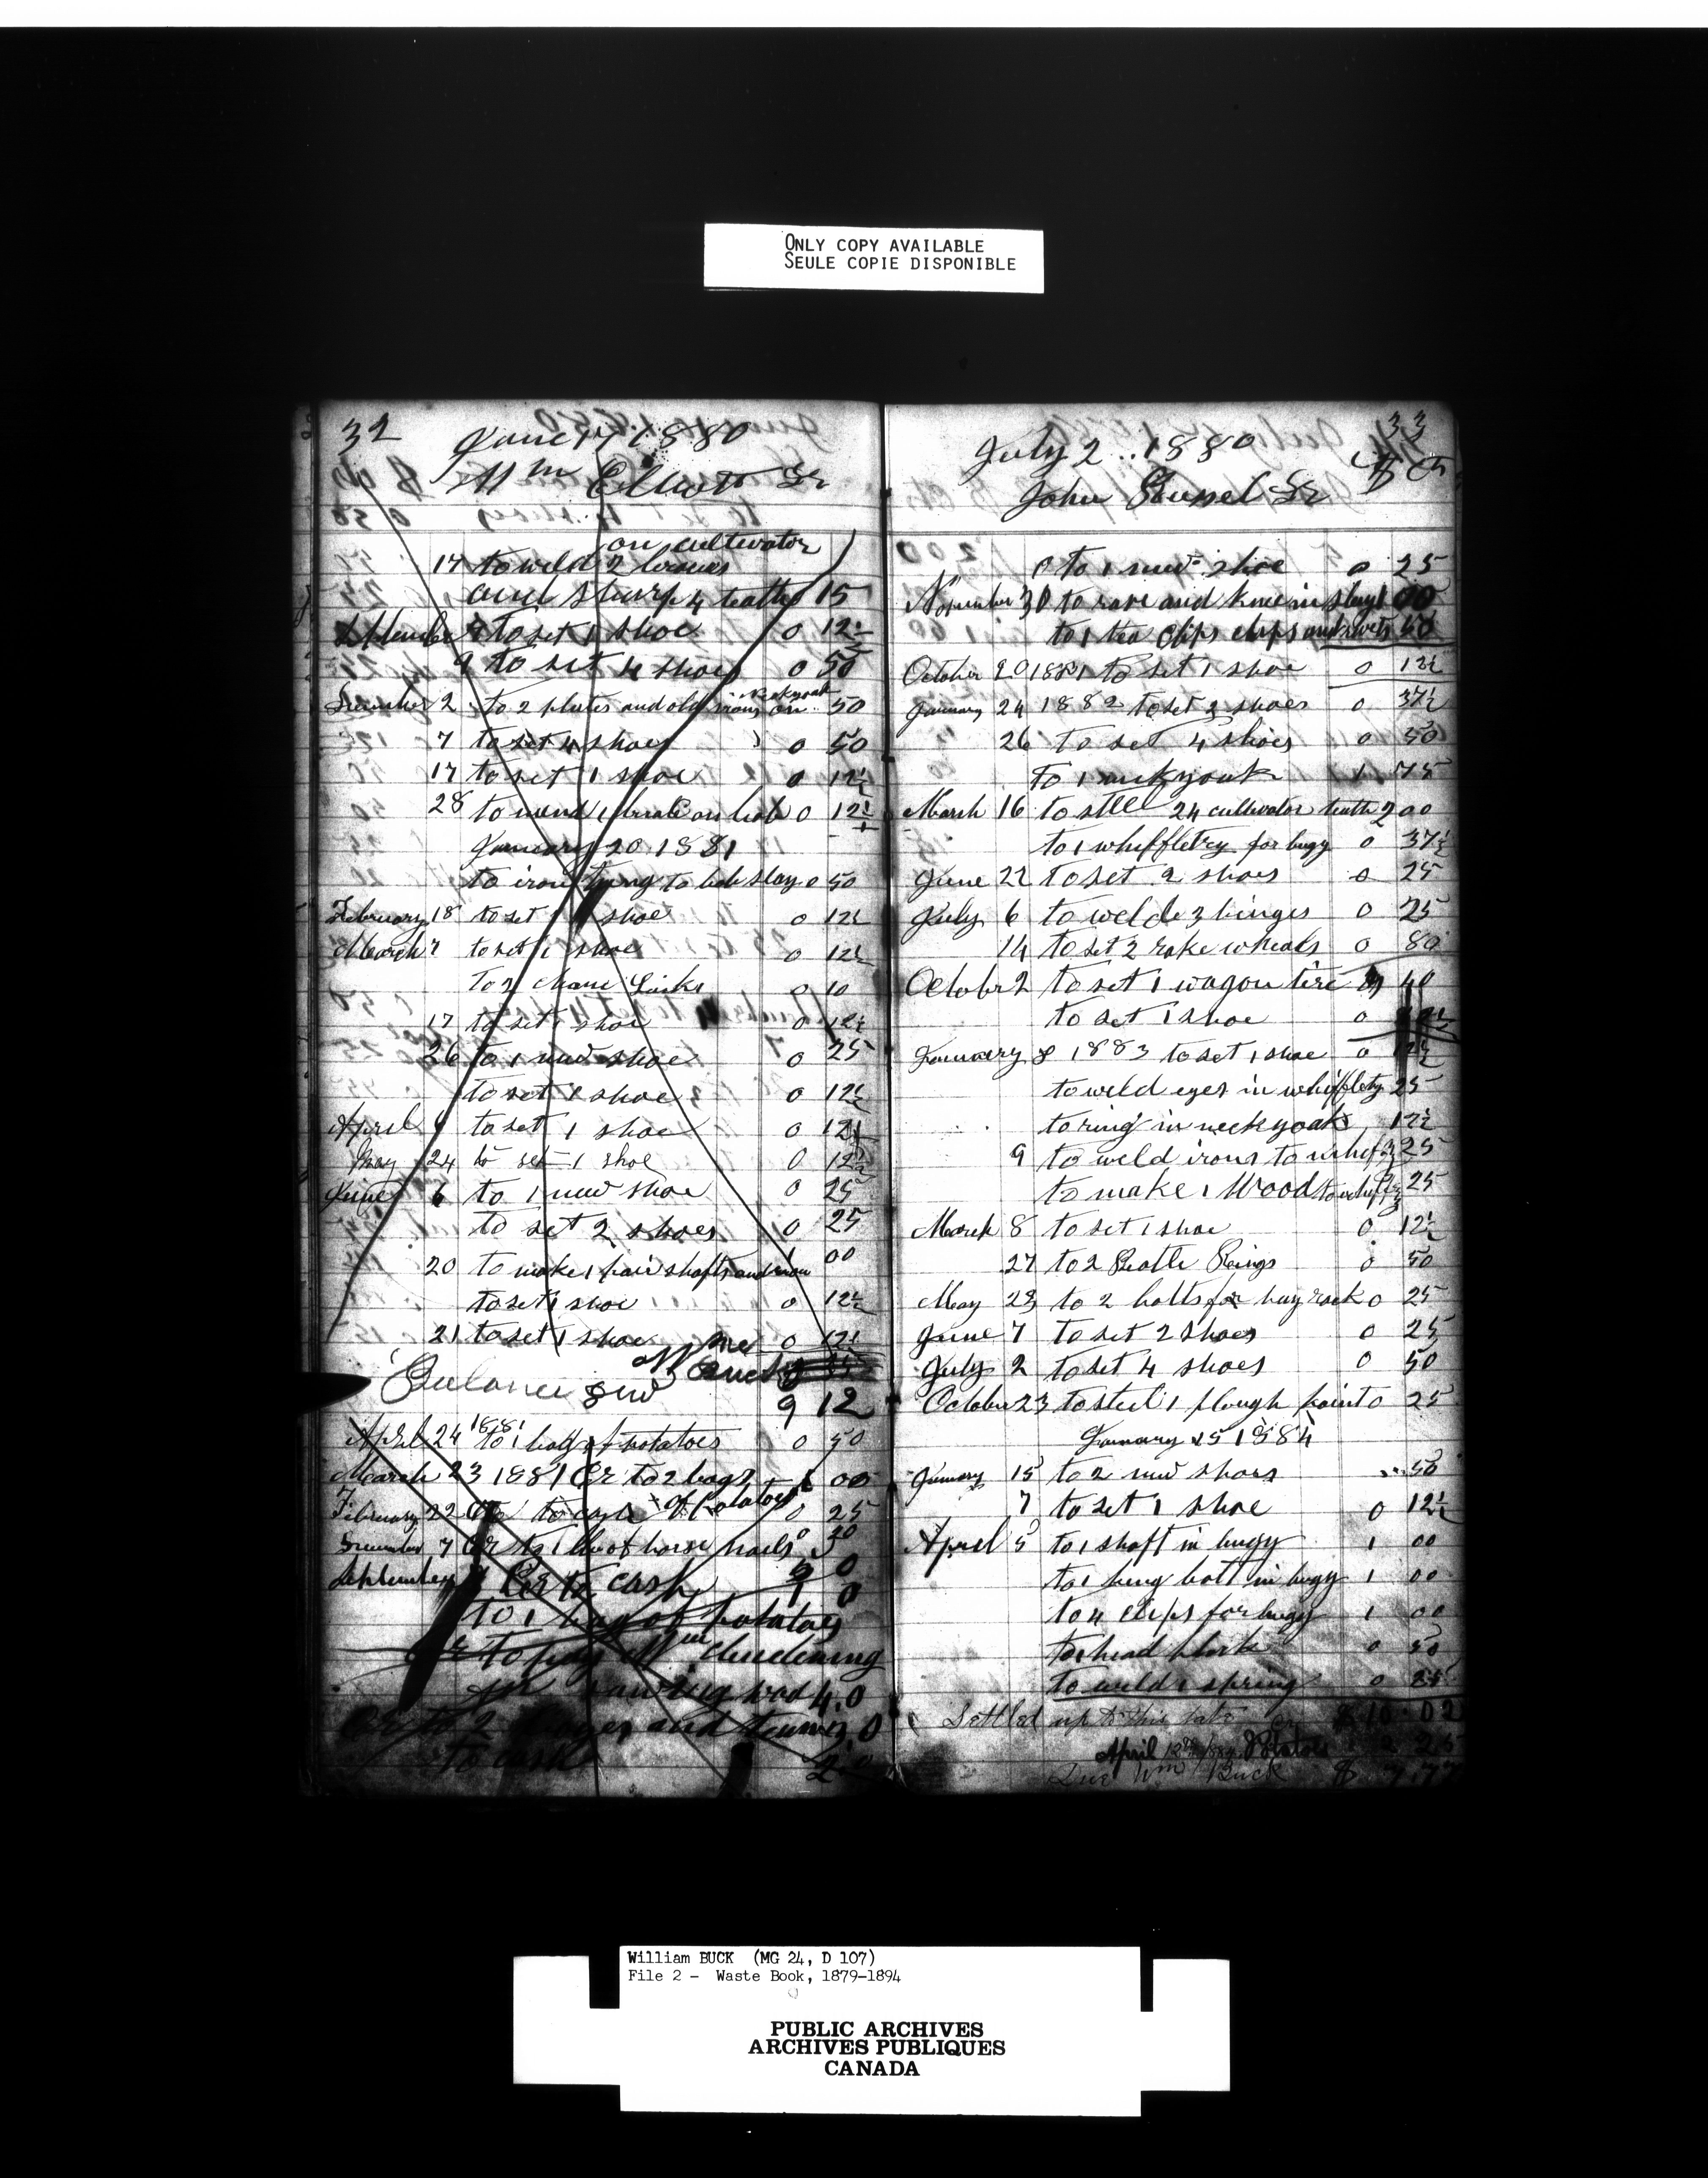 ONLY COPY AVAILABLE
SEULE COPIE DISPONIBLE
32
June 17 1880
Wm Elliott Dr
on cultivator
17 to weld 2 braces
and sharp 4 teath 15
September 7 to set 1 shoe 0 12½
9 to set 4 shoes 0 50
neckyoak
December 2 to 2 plates and old irons on 50
7 to set 4 shoes 0 50
17 to set 1 shoe 0 12½
28 to mend 1 brake on bob 0 12½
January 20 1881
to iron tung to bob slay 0 50
February 18 to set 1 shoe 0 12½
March 7 to set 1 shoe 0 12½
To 2 chane Links 0 10
17 to set 1 shoe 0 12½
26 to 1 new shoe 0 25
to set 1 shoe 0 12½
April to set 1 shoe 0 12½
May 24 to set 1 shoe 0 12½
June 6 to 1 new shoe 0 25
to set 2 shoes 0 25
20 to make 1 pair shafts and iron 1 00
to set 1 shoe 0 12½
21 to set 1 shoe 0 12½
Balance due 9 12
April 24 1881 to 1 bag of potatoes 0 50
March 23 1881 Cr to 2 bags 1 00
of potatoes
February 22 to cash 0 25
December 7 Cr to 1 lb of horse nails 0 30
September Cr to cash
to 1 bag of potatoes
Cr to pay Wm
for sawing wood 4.0
Cr to 2 and
to cash
33
July 2 1880
$ Ct
John Russel Dr
0 to 1 new shoe 0 25
November 30 to rave and knee in slay 1 00
to 1 clips clips and rivets 50
October 20 1881 to set 1 shoe 0 12½
January 24 1882 to set 3 shoes 0 37½
26 to set 4 shoes 0 50
To 1 neckyoak 1 75
March 16 to stell 24 cultivator teath 2 00
to 1 whiffletry for bugy 0 37½
June 22 to set 2 shoes 0 25
July 6 to weld 3 hinges 0 75
14 to set 2 rake wheals 0 80
October 2 to set 1 wagon tire 40
to set 1 shoe 0
January 8 1883 to set 1 shoe 0 12½
to weld eyes in whiffletry 25
to ring in neckyoak 12½
9 to weld irons to whif 25
to make 1 Wood to whiff 25
March 8 to set 1 shoe 0 12½
27 to 2 Beatle Rings 0 50
May 23 to 2 bolts for hay rack 0 25
June 7 to set 2 shoes 0 25
July 2 to set 4 shoes 0 50
October 23 to steel 1 plough point 0 25
January 15 1884
January 15 to 2 new shoes 50
7 to set 1 shoe 0 12½
April 5 to 1 shaft in bugy 1 00
to 1 king bolt in bugy 1 00
to 4 clips for bugy 1 00
to head block 0 50
to weld 1 spring 0 25
Settled up to this date $ 10.02
April 12th 1884 Potatoes 2 25
Due Wm Buck $ 7.77
William BUCK (MG 24, D 107)
File 2 - Waste Book, 1879-1894
PUBLIC ARCHIVES
ARCHIVES PUBLIQUES
CANADA